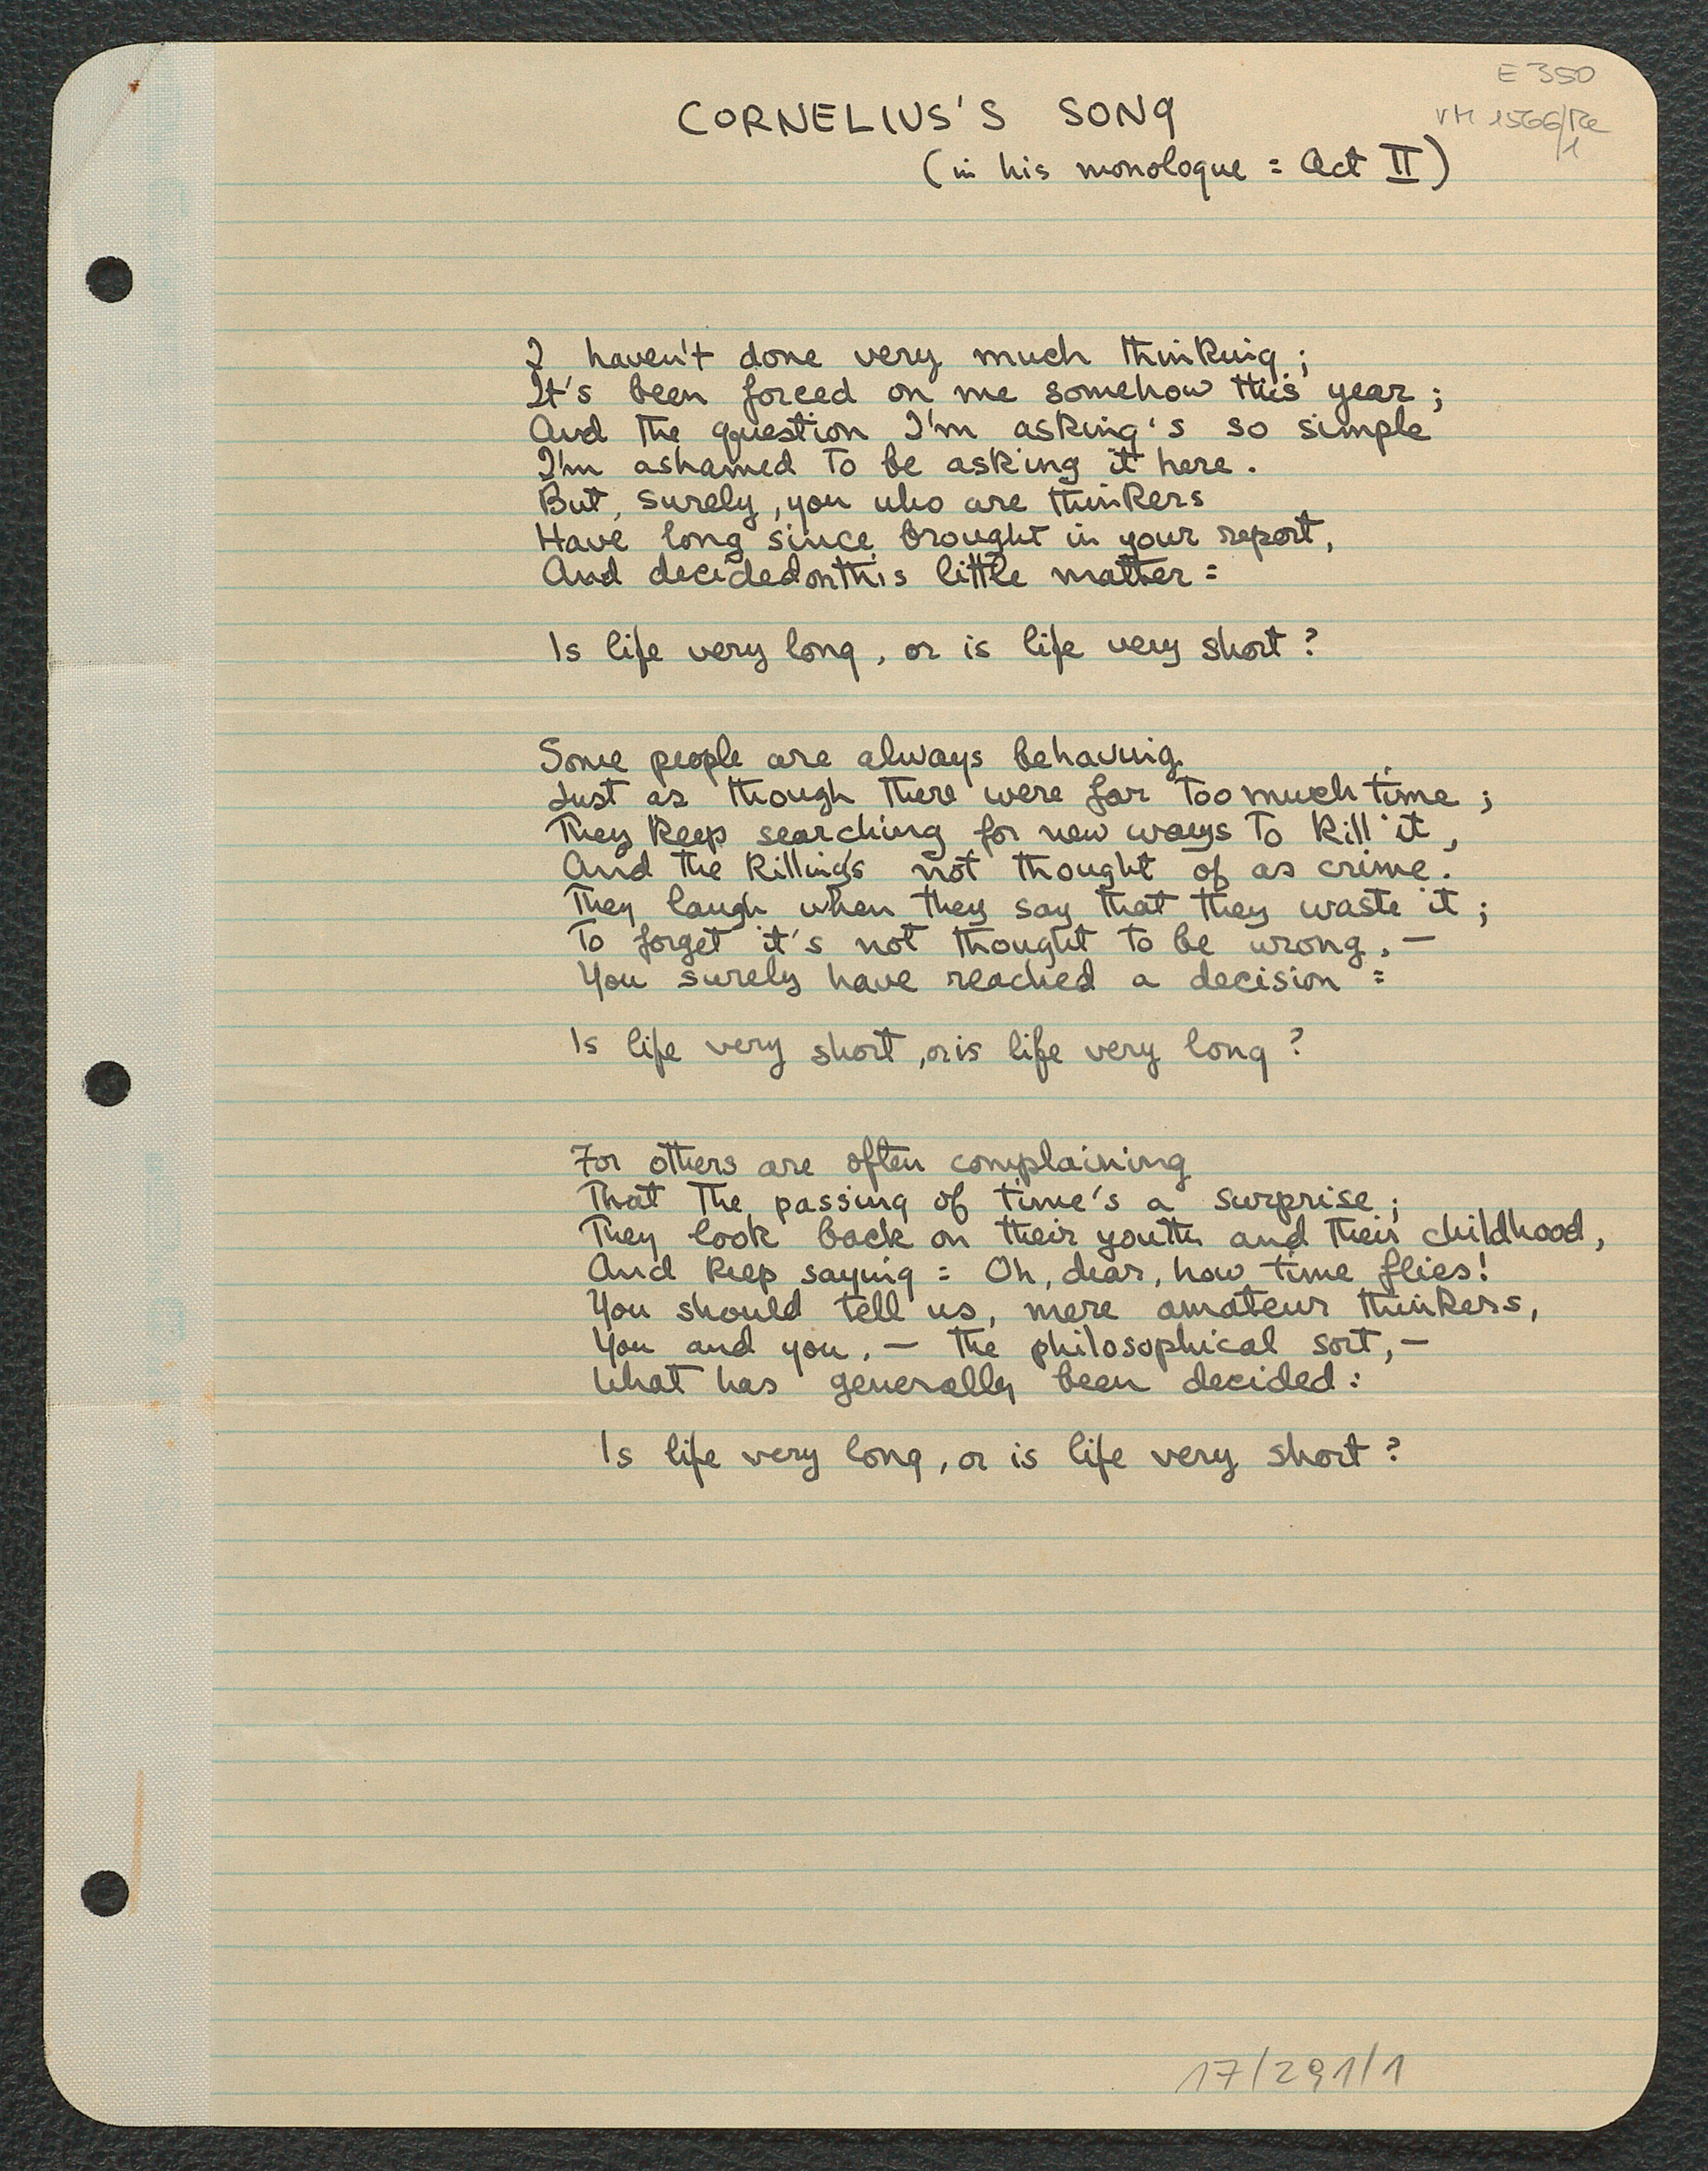 E 350
VM 1566/Re
1
CORNELIUS'S SONG
(in his monologue = Act II)
I haven't done very much thinking;
It's been forced on me somehow this year;
And the question I'm asking's so simple
I'm ashamed to be asking it here.
But, surely, you who are thinkers
Have long since brought in your report,
And decided on this little matter =
Is life very long, or is life very short?
Some people are always behaving
Just as though there were far too much time;
They keep searching for new ways to kill it,
And the killing's not thought of as crime.
They laugh when they say that they waste it;
To forget it's not thought to be wrong. —
You surely have reached a decision =
Is life very short, or is life very long?
For others are often complaining
That the passing of time's a surprise;
They look back on their youth and their childhood,
And keep saying = Oh, dear, how time flies!
You should tell us, mere amateur thinkers,
You and you, — the philosophical sort, —
What has generally been decided:
Is life very long, or is life very short?
17/291/1